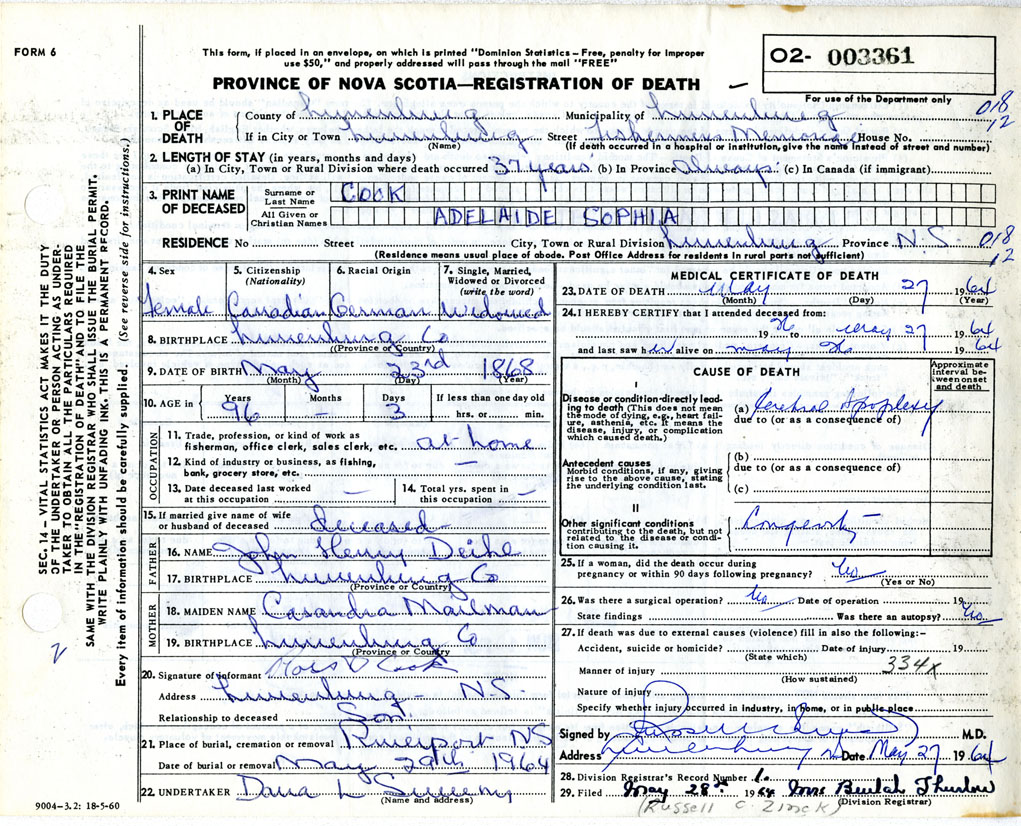 FORM 6
This form, if placed in an envelope, on which is printed "Dominion Statistics – Free, penalty for improper
use $50," and properly addressed will pass through the mail "FREE"
O2- 003361
PROVINCE OF NOVA SCOTIA—REGISTRATION OF DEATH
For use of the Department only
018
12
1. PLACE OF DEATH
County of Lunenburg Municipality of Lunenburg
If in City or Town Lunenburg Street Fishermens Memorial House No.
(Name) (If death occurred in a hospital or institution, give the name instead of street and number)
2. LENGTH OF STAY (in years, months and days)
(a) In City, Town or Rural Division where death occurred 37 years (b) In Province Always (c) In Canada (if immigrant)
3. PRINT NAME OF DECEASED
Surname or Last Name COOK
All Given or Christian Names ADELAIDE SOPHIA
RESIDENCE No Street City, Town or Rural Division Lunenburg Province N.S. 018
12
(Residence means usual place of abode. Post Office Address for residents in rural parts not sufficient)
4. Sex 5. Citizenship (Nationality) 6. Racial Origin 7. Single, Married, Widowed or Divorced (write the word)
Female Canadian German Widowed
8. BIRTHPLACE Lunenburg Co
(Province or Country)
9. DATE OF BIRTH May 23rd 1868
(Month) (Day) (Year)
10. AGE in Years Months Days If less than one day old
96 – 3 hrs. or min.
OCCUPATION
11. Trade, profession, or kind of work as
fisherman, office clerk, sales clerk, etc. at home
12. Kind of industry or business, as fishing,
bank, grocery store, etc. —
13. Date deceased last worked at this occupation — 14. Total yrs. spent in this occupation –
15. If married give name of wife
or husband of deceased deceased
FATHER
16. NAME John Henry Deihe
17. BIRTHPLACE Lunenburg Co
(Province or Country)
MOTHER
18. MAIDEN NAME Casandra Mailman
19. BIRTHPLACE Lunenburg Co
(Province or Country)
20. Signature of informant Ross D Cook
Address Lunenburg – N.S.
Relationship to deceased Son
21. Place of burial, cremation or removal Riverport NS
Date of burial or removal May 29th 1964
22. UNDERTAKER Dana L Sweeny
(Name and address)
9004–3.2: 18-5-60
MEDICAL CERTIFICATE OF DEATH
23. DATE OF DEATH May 27 1964
(Month) (Day) (Year)
24. I HEREBY CERTIFY that I attended deceased from:
19 May 27 1964
and last saw her alive on May 1964
CAUSE OF DEATH
Approximate interval between onset and death
I
Disease or condition directly leading to death (This does not mean
the mode of dying, e.g., heart failure, asthenia, etc. It means the
disease, injury, or complication
which caused death.)
(a) Cerebral Apoplexy
due to (or as a consequence of)
Antecedent causes
Morbid conditions, if any, giving
rise to the above cause, stating
the underlying condition last.
(b)
due to (or as a consequence of)
(c)
II
Other significant conditions
contributing to the death, but not
related to the disease or condition causing it.
Longevity
25. If a woman, did the death occur during
pregnancy or within 90 days following pregnancy? No
(Yes or No)
26. Was there a surgical operation? No Date of operation 19
State findings Was there an autopsy? No
27. If death was due to external causes (violence) fill in also the following:–
Accident, suicide or homicide? Date of injury 19
(State which)
334x
Manner of injury
(How sustained)
Nature of injury
Specify whether injury occurred in industry, in home, or in public place
Signed by M.D.
Address Lunenburg NS Date May 27 1964
28. Division Registrar's Record Number
29. Filed May 28th 1964 Mrs Beulah Thurlow
(Division Registrar)
(Russell C. Zinck)
SEC. 14 – VITAL STATISTICS ACT MAKES IT THE DUTY
OF THE UNDERTAKER OR PERSON ACTING AS UNDERTAKER TO OBTAIN ALL THE PARTICULARS REQUIRED
IN THE "REGISTRATION OF DEATH" AND TO FILE THE
SAME WITH THE DIVISION REGISTRAR WHO SHALL ISSUE THE BURIAL PERMIT.
WRITE PLAINLY WITH UNFADING INK. THIS IS A PERMANENT RECORD.
Every item of information should be carefully supplied. (See reverse side for instructions.)